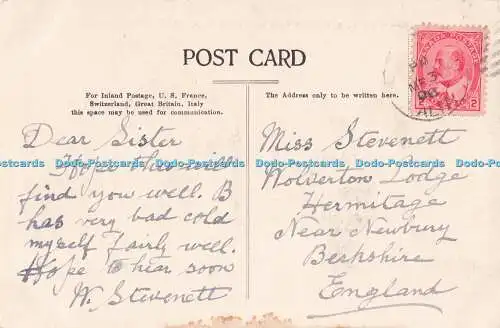 POST CARD
For Inland Postage, U. S. France,
Switzerland, Great Britain, Italy
this space may be used for communication.
The Address only to be written here.
CANADA POSTAGE
2 2
Dear Sister
Hope this will
find you well. B
has very bad cold
myself fairly well.
Hope to hear soon
W. Stevenett
Miss Stevenett
Wolverton Lodge
Hermitage
Near Newbury
Berkshire
England
Dodo-Postcards Dodo-Postcards Dodo-Postcards Dodo-Postcards Dodo-Postcards